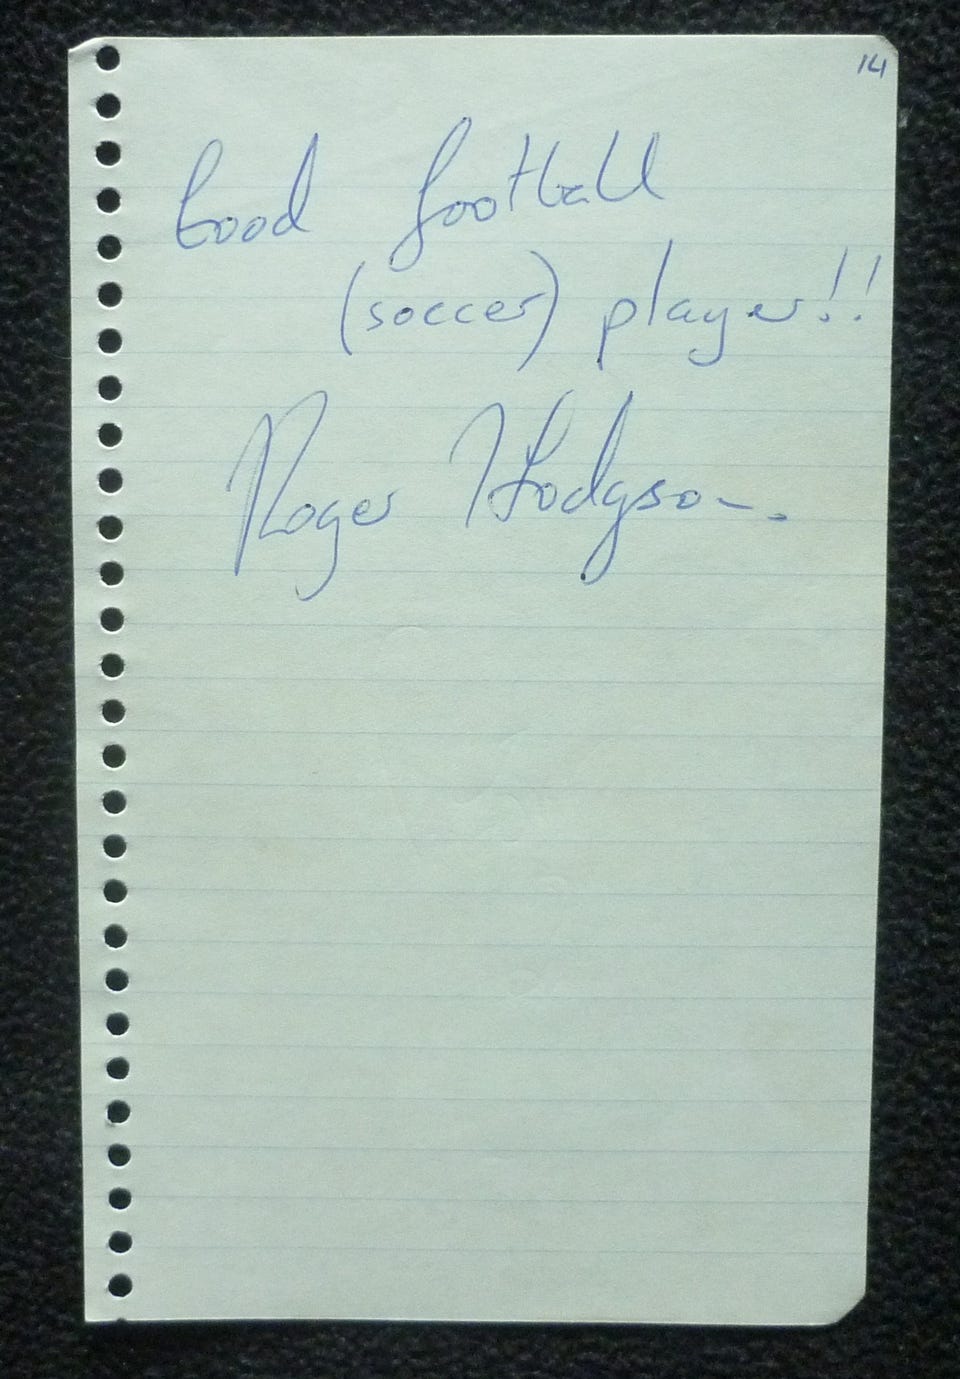 14
Good football
(soccer) player!!
Roger Hodgson.